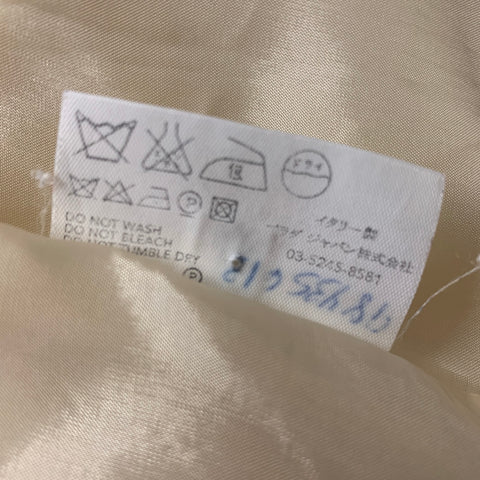 ドライ
P
DO NOT WASH
DO NOT BLEACH
DO NOT TUMBLE DRY
P
イタリー製
プラダ ジャパン株式会社
03-5245-8581